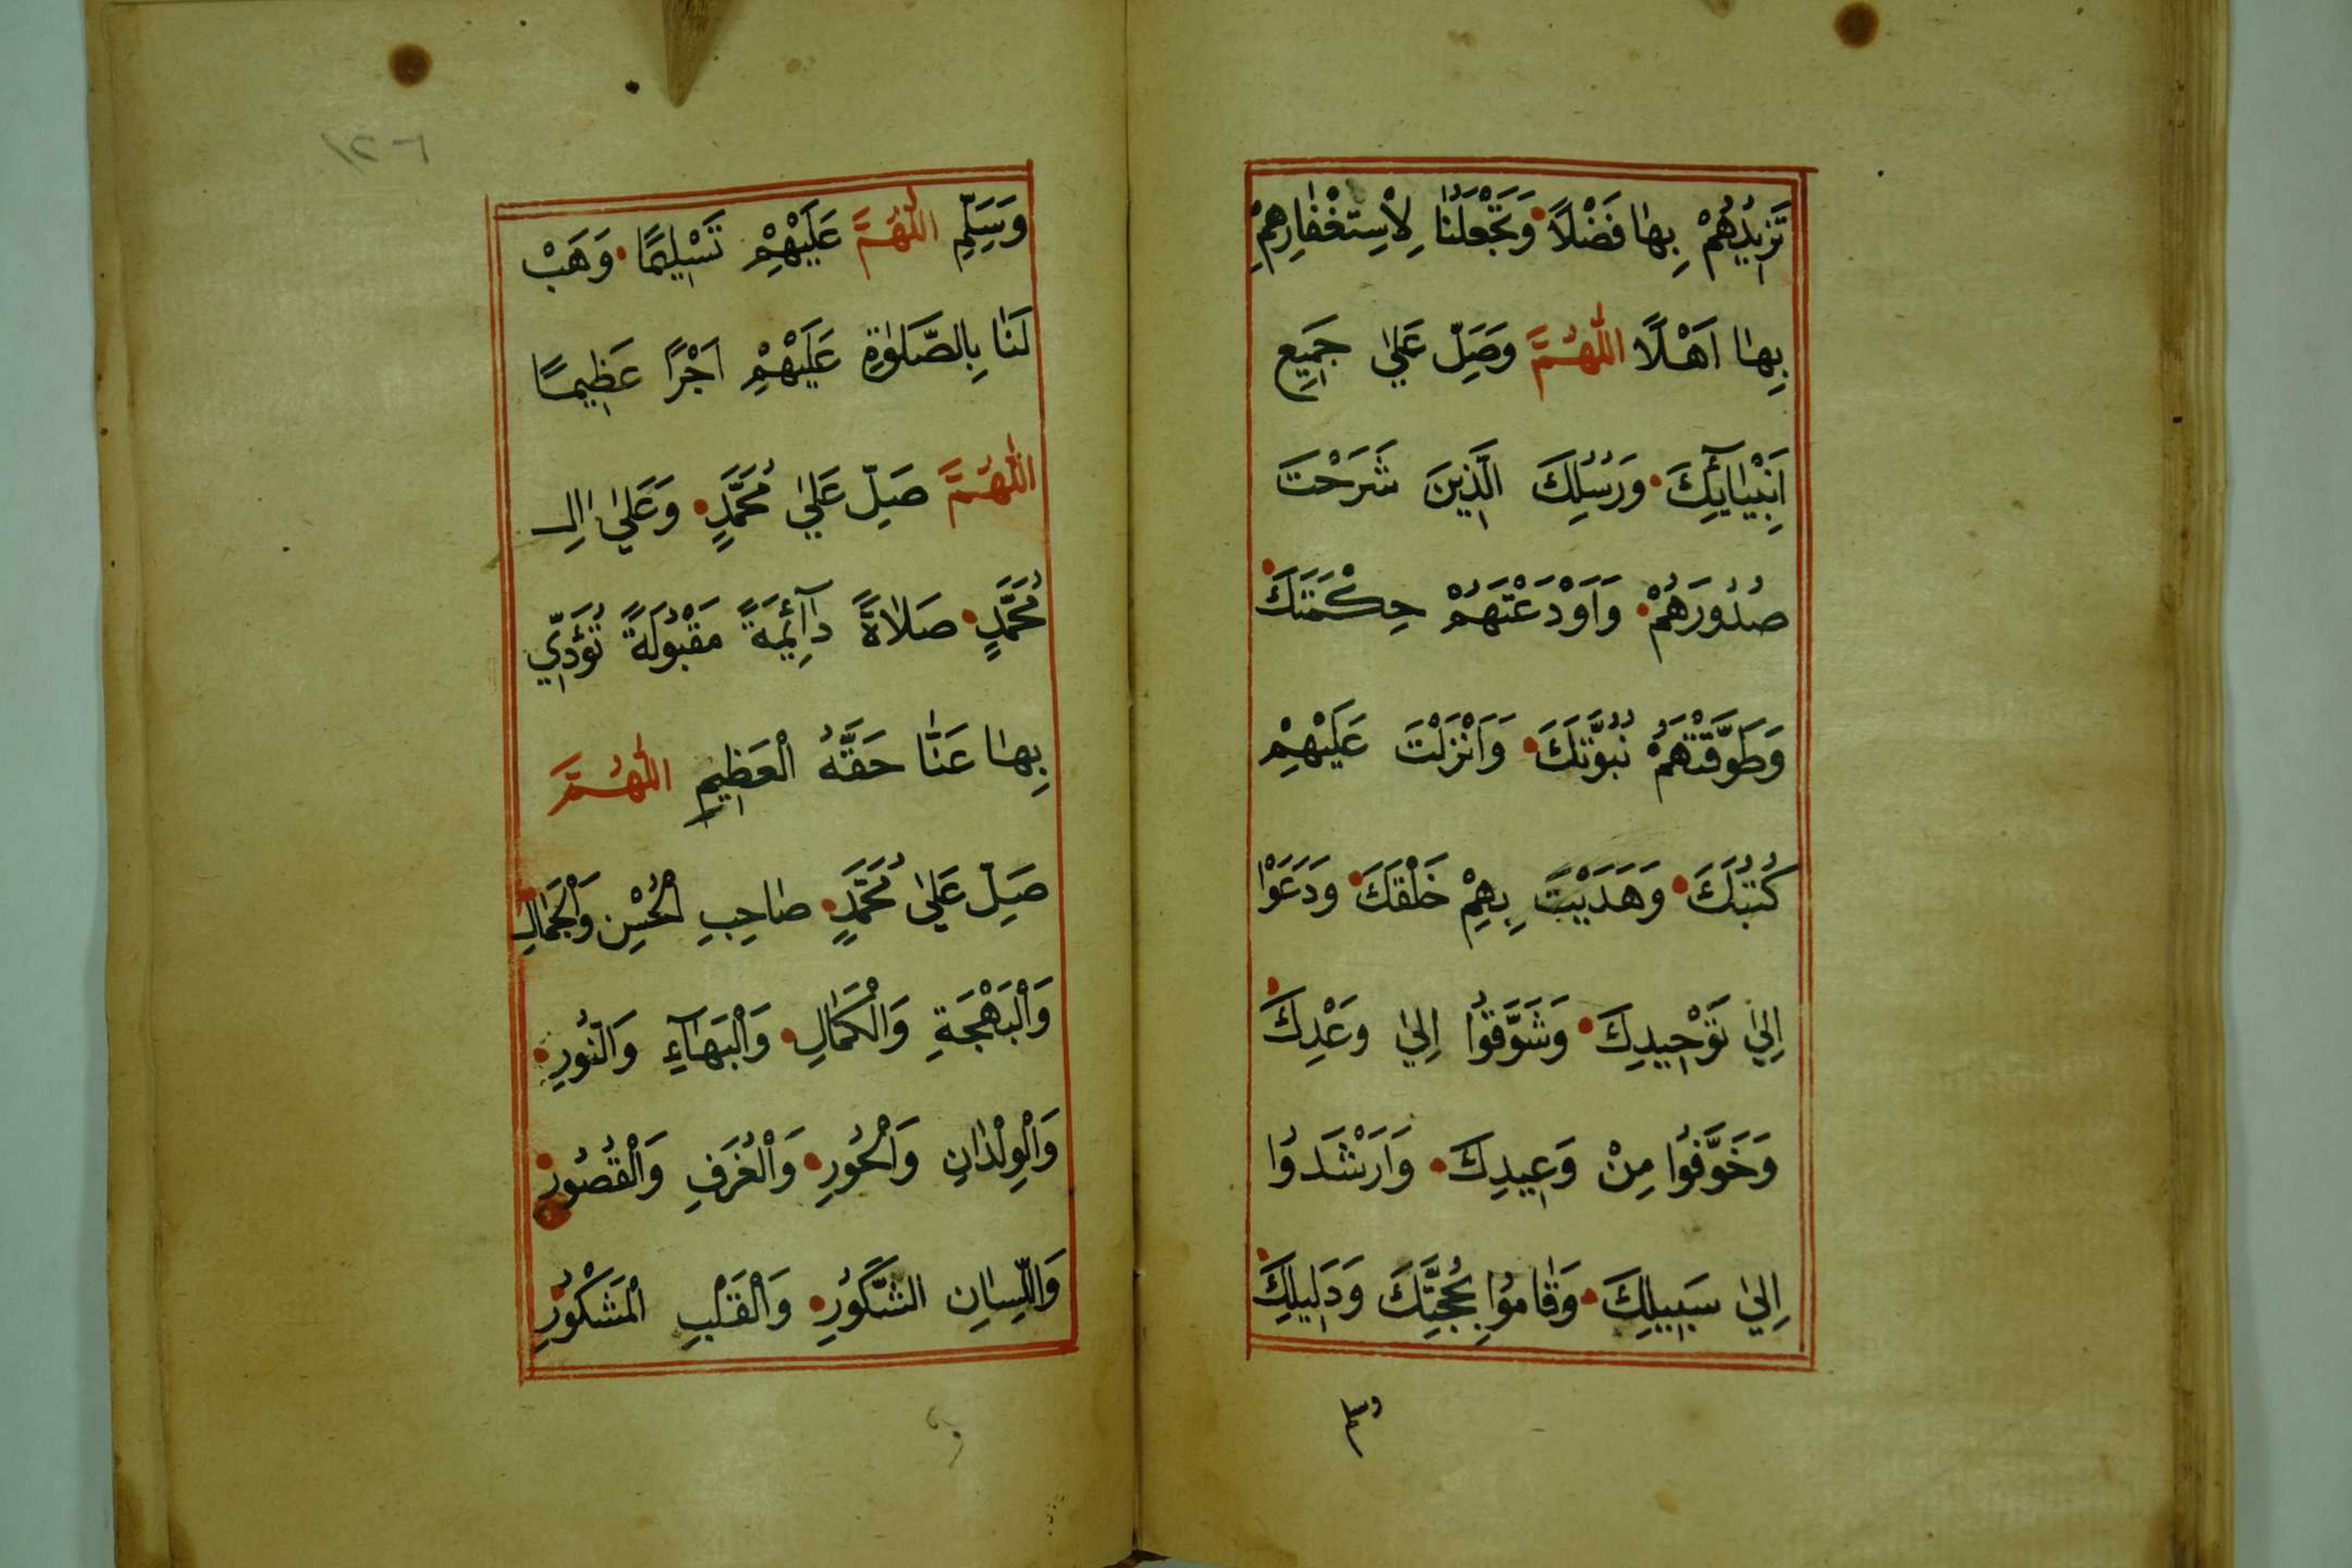 تَزِيدُهُمْ بِهَا فَضْلًا وَتَجْعَلُنَا لِاسْتِغْفَارِهِمْ
بِهَا اَهْلًا اَللّٰهُمَّ وَصَلِّ عَلٰي جَمِيعِ
اَنْبِيَائِكَ وَرُسُلِكَ الَّذِينَ شَرَحْتَ
صُدُورَهُمْ وَاَوْدَعْتَهُمْ حِكْمَتَكَ
وَطَوَّقْتَهُمْ نُبُوَّتَكَ وَاَنْزَلْتَ عَلَيْهِمْ
كُتُبَكَ وَهَدَيْتَ بِهِمْ خَلْقَكَ وَدَعَوْا
اِلٰي تَوْحِيدِكَ وَشَوَّقُوا اِلٰي وَعْدِكَ
وَخَوَّفُوا مِنْ وَعِيدِكَ وَاَرْشَدُوا
اِلٰي سَبِيلِكَ وَقَامُوا بِحُجَّتِكَ وَدَلِيلِكَ
وَسَلِّمِ اللّٰهُمَّ عَلَيْهِمْ تَسْلِيمًا وَهَبْ
لَنَا بِالصَّلٰوةِ عَلَيْهِمْ اَجْرًا عَظِيمًا
اَللّٰهُمَّ صَلِّ عَلٰي مُحَمَّدٍ وَعَلٰي اٰلِ
مُحَمَّدٍ صَلَاةً دَآئِمَةً مَقْبُولَةً تُؤَدِّي
بِهَا عَنَّا حَقَّهُ الْعَظِيمِ اَللّٰهُمَّ
صَلِّ عَلٰي مُحَمَّدٍ صَاحِبِ الْحُسْنِ وَالْجَمَالِ
وَالْبَهْجَةِ وَالْكَمَالِ وَالْبَهَآءِ وَالنُّورِ
وَالْوِلْدَانِ وَالْحُورِ وَالْغُرَفِ وَالْقُصُورِ
وَاللِّسَانِ الشَّكُورِ وَالْقَلْبِ الْمَشْكُورِ